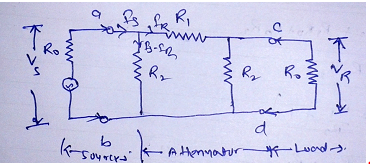 a
I_S
I_R
R_1
c
V_S
R_0
I_S-I_R
R_2
R_2
R_0
V_R
S
b
d
Source
Attenuator
Load